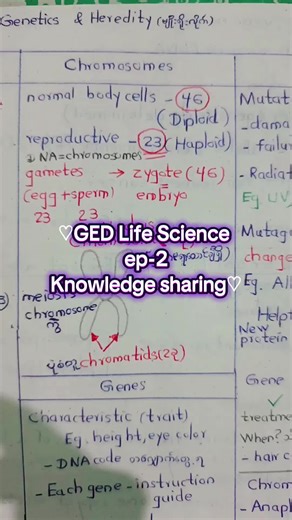 Genetics & Heredity (မျိုးရိုးလိုက်)
Chromosomes
normal body cells - 46
(Diploid)
reproductive - 23 (Haploid)
DNA=chromosomes
gametes → zygote (46)
(egg + sperm) embryo
23 23
♡GED Life Science
ep-2
Knowledge sharing♡
meiosis
chromosome
ကို
chromatids(၂ခု)
Genes
Characteristic (trait)
Eg. height, eye color
- DNA code
- Each gene - instruction
guide
Mutat
- dama
- failur
- Radiat
Eg UV,
Mutag
change
Eg. Al
Help
New
protein
Gene
treatme
When?
- hair c
Chrom
- Anaph